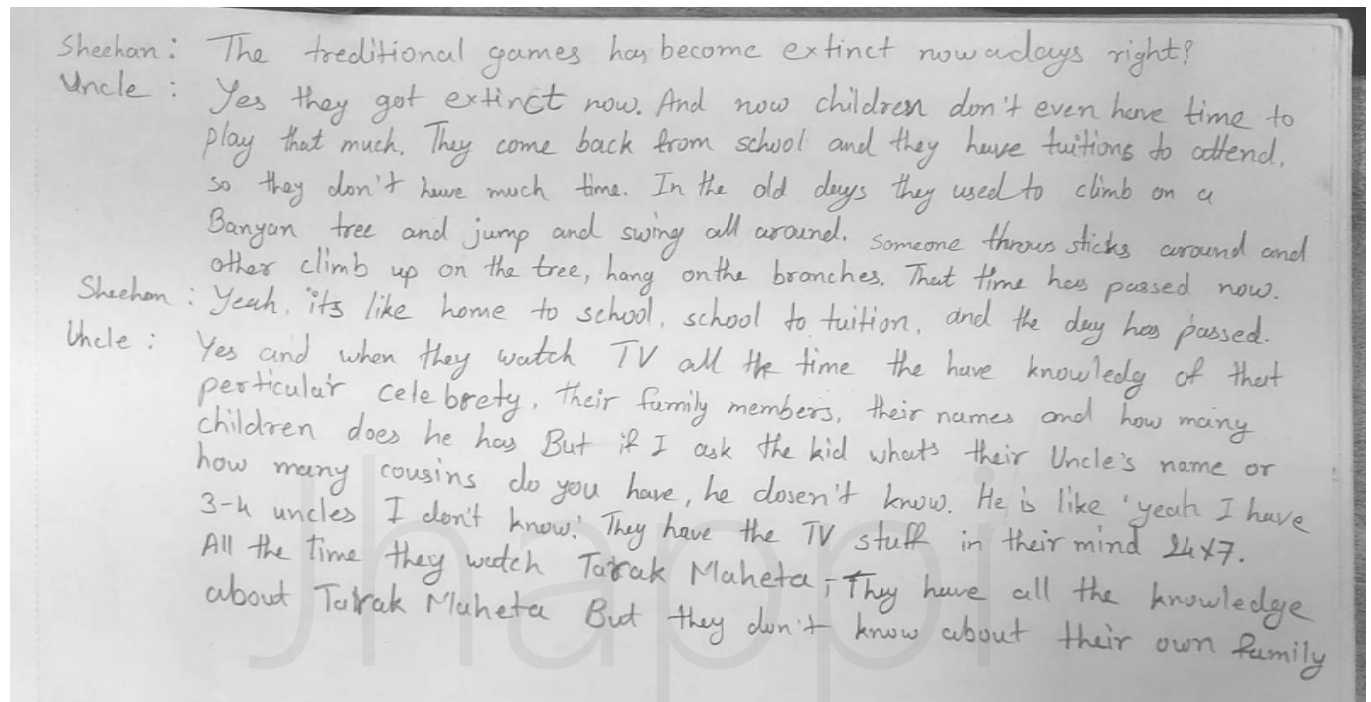 Sheehan : The treditional games has become extinct nowadays right?
Uncle : Yes they got extinct now. And now children don't even have time to
play that much. They come back from school and they have tuitions to attend,
so they don't have much time. In the old days they used to climb on a
Banyan tree and jump and swing all around. Someone throws sticks around and
other climb up on the tree, hang on the branches. That time has passed now.
Sheehan : Yeah, its like home to school, school to tuition, and the day has passed.
Uncle : Yes and when they watch TV all the time the have knowledg of that
perticular celebrety, their family members, their names and how many
children does he has But if I ask the kid whats their Uncle's name or
how many cousins do you have, he dosen't know. He is like 'yeah I have
3-4 uncles I don't know.' They have the TV stuff in their mind 24x7.
All the time they watch Tarak Maheta, They have all the knowledge
about Tarak Maheta But they don't know about their own family
Jhappi